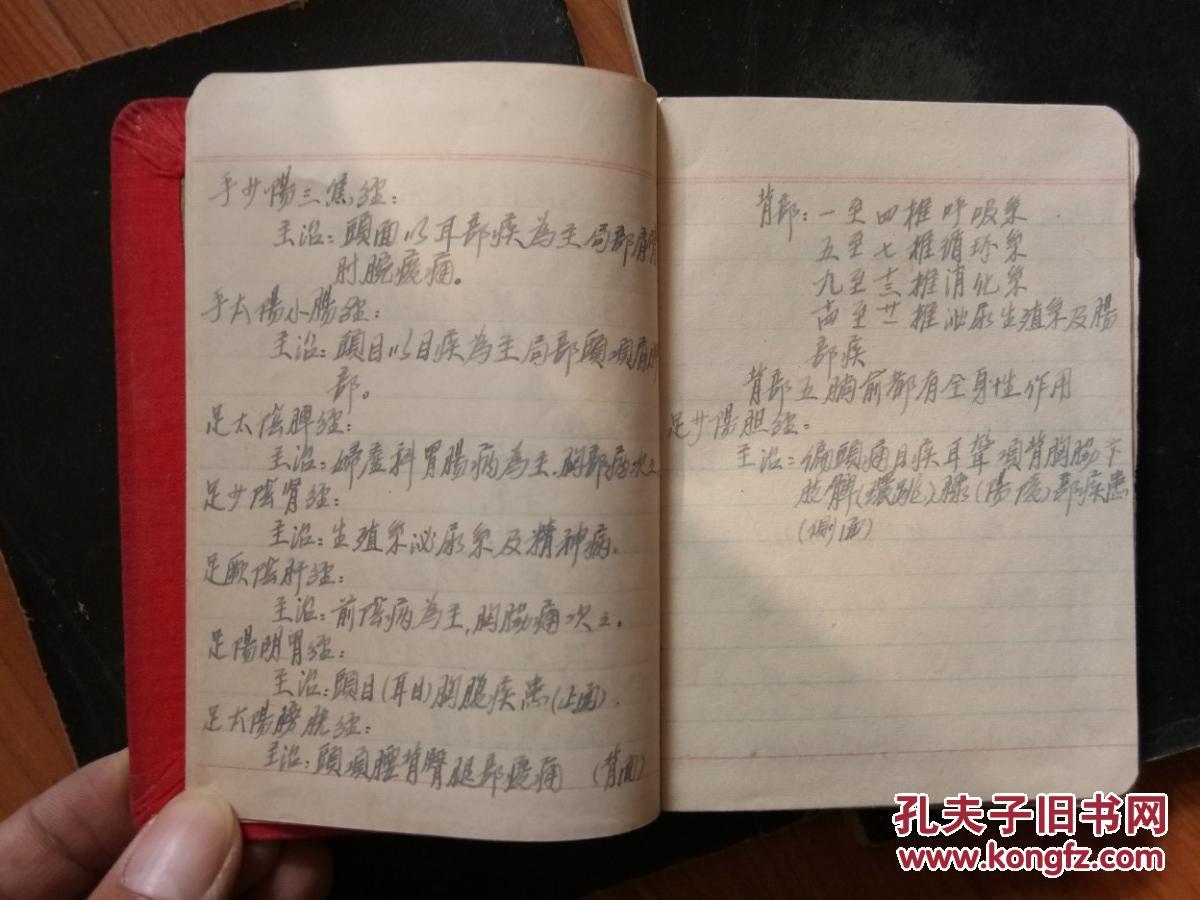 手少陽三焦経：
主治：頭面以耳部疾為主局部肩臂
肘腕痠痛。
手太陽小腸経：
主治：頭目以目疾為主局部頭項肩胛
部。
足太陰脾経：
主治：婦產科胃腸病為主.胸部病次之
足少陰腎経：
主治：生殖系泌尿系及精神病.
足厥陰肝経：
主治：前陰病為主,胸脇痛次之.
足陽明胃経：
主治：頭目(耳目)胸腹疾患(正面).
足太陽膀胱経：
主治：頭項腰背臀腿部痠痛 (背面)
背部：一至四椎呼吸系.
五至七椎循环系
九至十三椎消化系
十四至廿一椎泌尿生殖系及腸
部疾
背部五胸前都有全身性作用
足少陽胆経：
主治：偏頭痛目疾耳聾項背胸脇下
肢髀(環跳)膝(陽陵)部疾患
(側面)
孔夫子旧书网
www.kongfz.com